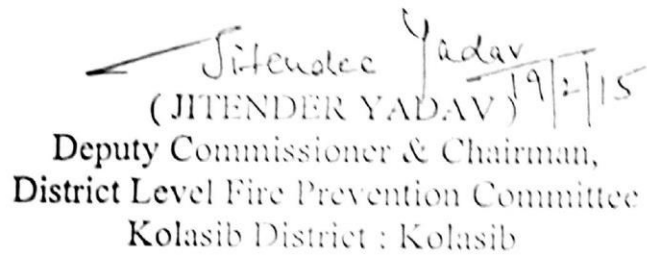 Jitender Yadav
19/2/15
( JITENDER YADAV )
Deputy Commissioner & Chairman,
District Level Fire Prevention Committee
Kolasib District : Kolasib